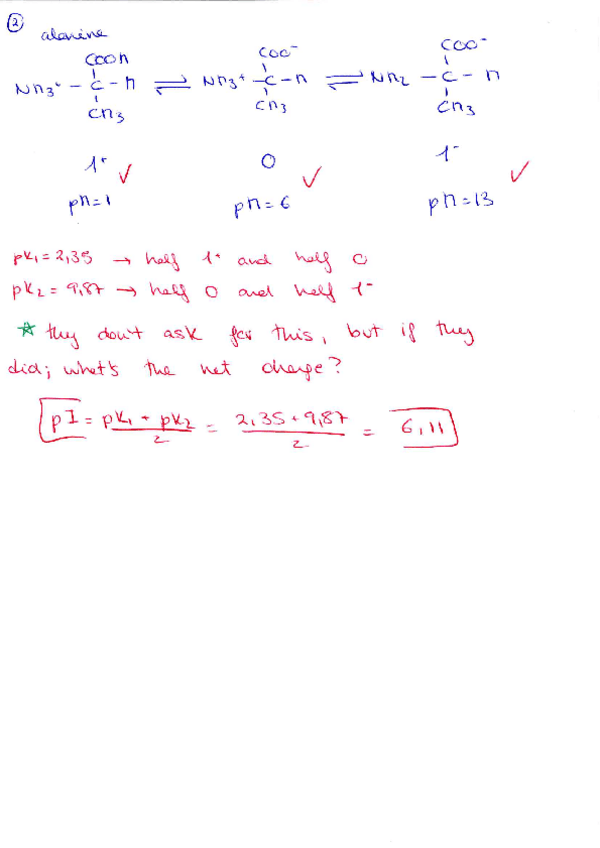 2
alanine
COOH COO⁻ COO⁻
NH3⁺ - C - H ⇌ NH3⁺ - C - H ⇌ NH2 - C - H
CH3 CH3 CH3
1⁺ ✓ 0 ✓ 1⁻ ✓
pH=1 pH=6 pH=13
pK₁=2,35 → half 1⁺ and half 0
pK₂=9,87 → half 0 and half 1⁻
* they don't ask for this, but if they
did; what's the net charge?
pI = pK₁ + pK₂ / 2 = 2,35+9,87 / 2 = 6,11